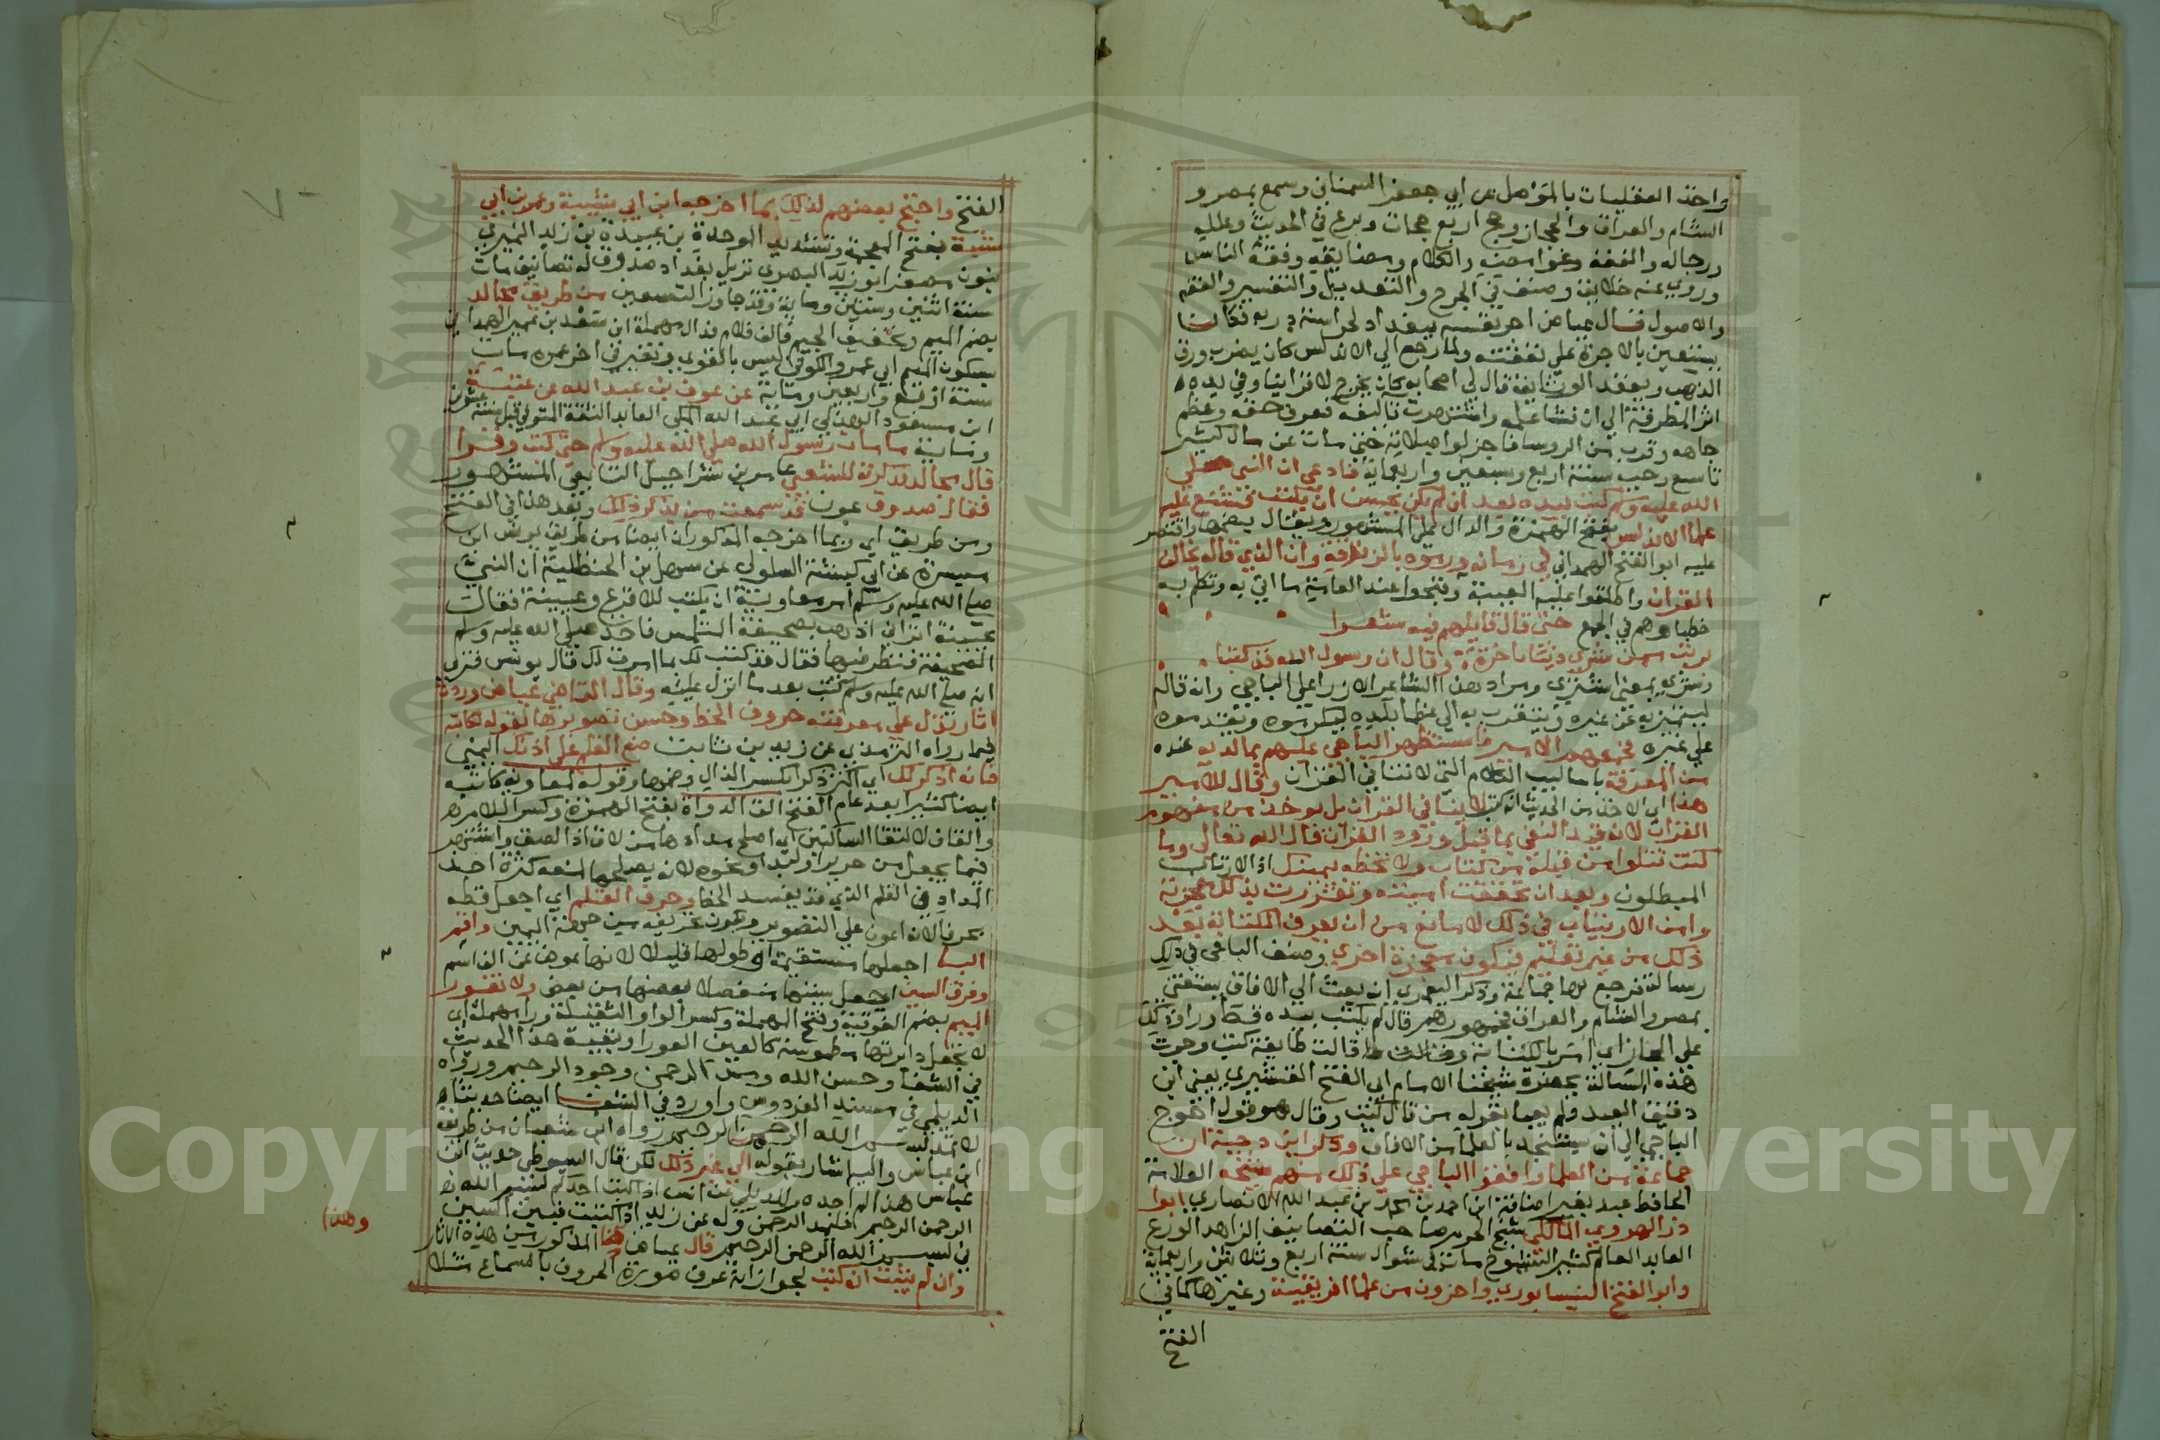 واخذ العقليات بالموصل عن ابي جعفر السمناني وسمع بمصر و
الشام والعراق والحجاز وحج اربع حجات وبرع في الحديث وعلله
ورجاله والفقه وغوامضه والكلام ومضايقه وفقه الناس
وروي عنه خلايق وصنف في الجرح والتعديل والتفسير والفقه
والاصول قال عياض اجر نفسه ببغداد لحراسة درب فكان
يستعين بالاجرة علي نفقته ولما رجع الي الاندلس كان يضرب ورق
الذهب ويعقد الوثايق قال لي اصحابه كان يخرج لاقراينا وفي يده
اثر المطرقة الي ان نشا علمه واشتهرت تاليفه فعرف حقه وعظم
جاهه وقرب من الروسا فاجزلوا صلاته حتي مات عن مال كثير
تاسع رجب سنة اربع وسبعين واربعماية فادعي ان النبي صلي
الله عليه وسلم كتب بيده بعد ان لم يكن يحسن ان يكتب فشنع عليه
علما الاندلس بفتح الهمزة والدال علي المشهور ويقال بضمها واقتصر
عليه ابو الفتح الهمداني في زمانه ورموه بالزندقة وان الذي قاله يخالف
القران واطلقوا عليه الفتنة وقبحوا عند العامة ما اتي به وتكلم به
خطباوهم في الجمع حتي قال قايلهم فيه شعرا
بريت ممن شري دنيا باخرة وقال ان رسول الله قد كتبا
وشري بمعني اشتري ومراد هذا الشاعر الازرا علي الباجي وانه قاله
ليتميز به عن غيره ويتقرب به الي عظما بلده ليكرموه ويقدموه
علي غيره فجمعهم الامير فاستظهر الباجي عليهم بما لديه عنده
من المعرفة باساليب الكلام التي لا تنافي القران وقال للامير
هذا اي الاخذ من الحديث انه كتب لا ينافي القران بل يوخذ من مفهوم
القران لانه قيد النفي بما قبل ورود القران قال الله تعالي وما
كنت تتلوا من قبله من كتاب ولا تخطه بيمينك اذا لارتاب
المبطلون وبعد ان تحققت اميته وتقررت بذلك معجزته
وامن الارتياب في ذلك لا مانع من ان يعرف الكتابة بعد
ذلك من غير تعليم فيكون معجزة اخري وصنف الباجي في ذلك
رسالة فرجع بها جماعة وذكر اليعمري انه بعث الي الافاق يستفتي
بمصر والشام والعراق فجمهورهم قال لم يكتب بيده قط وراوا ذلك
علي المجاز اي امر بالكتابة وقالت طايفة كتب وجرت
هذه المسالة بحضرة شيخنا الامام ابي الفتح القشيري يعني ابن
دقيق العيد ولم يعبا بقوله من قال كتب وقال هو قول احوج
الباجي الي ان يستنجد بالعلما من الافاق وذكر ابن دحية ان
جماعة من العلما وافقوا الباجي علي ذلك منهم شيخه العلامة
الحافظ عبد بغير اضافة ابن احمد بن محمد بن عبد الله الانصاري ابوا
ذر الهروي المالكي شيخ الحرم صاحب التصانيف الزاهد الورع
العابد العالم كثير الشيوخ مات في شوال سنة اربع وثلاثين واربعماية
وابو الفتح النيسابوري واخرون من علما افريقية وغيرها كما في
الفتح
الفتح واحتج بعضهم لذلك بما اخرجه ابن ابي شيبة وعمر بن ابي
شبة بفتح المعجمة وتشديد الموحدة بن عبيدة بن زيد النميري
بنون مصغر ابو زيد البصري نزيل بغداد صدوق له تصانيف مات
سنة اثنين وستين ومايتين وقد جاوز التسعين من طريق مجالد
بضم الميم وتخفيف الجيم فالف فلام فدال مهملة ابن سعيد بن عمير الهمداني
بسكون الميم ابي عمرو الكوفي ليس بالقوي وتغير في اخر عمره مات
سنة اربع واربعين وماية عن عون بن عبد الله عن عتبة
ابن مسعود الهذلي ابي عبد الله الكوفي العابد الثقة المتوفي قبل سنة عشرين
وماية ما مات رسول الله صلي الله عليه وسلم حتي كتب وقرا
قال مجالد فذكرته للشعبي عامر بن شراحيل التابعي المشهور
فقال صدوق عون قد سمعت من يذكر ذلك وبعد هذا في الفتح
ومن طريق اي وبما اخرجه المذكوران ايضا من طريق يونس ابن
ميسرة عن ابي كبشة السلولي عن سهل بن الحنظلية ان النبي
صلي الله عليه وسلم امر معاوية ان يكتب للاقرع وعيينة فقال
عيينة اتراني اذهب بصحيفة المتلمس فاخذ صلي الله عليه وسلم
الصحيفة فنظر فيها فقال قد كتب لك ما امرت لك قال يونس فنري
انه صلي الله عليه وسلم كتب بعد ما انزل عليه وقال القاضي عياض وردت
اثار تدل علي معرفته حروف الخط وحسن تصويرها لقوله لكاتبه
فيما رواه الترمذي عن زيد بن ثابت ضع القلم علي اذنك اليمني
فانه اذكر لك اي اكثر ذكرا بكسر الذال وضمها وقوله لمعاوية كاتبه
ايضا كثيرا بعد عام الفتح الق الدواة بفتح الهمزة وكسر اللام
والقاف لالتقا الساكنين اي اصلح مدادها من لاق اذا لصق واشتهر
فيما يجعل من حرير او لبد او نحوه لانه يصلحها لمنعه كثرة اخذ
المداد في القلم الذي قد يفسد الخط وحرف القلم اي اجعل قطه
محرفا لانه اعون علي التصوير وكون تحريفه من جهة اليمين واقم
البا اجعلها مستقيمة او طولها قليلا لانها عوض عن الف اسم
وفرق السين اجعل سننها منفصلا بعضها من بعض ولا تعور
الميم بضم الفوقية وفتح المهملة وكسر الواو الثقيلة ورا مهملة اي
لا تجعل دايرتها مطموسة كالعين العورا وبقية هذا الحديث
في الشفا وحسن الله ومد الرحمن وجود الرحيم ورواه
الديلمي في مسند الفردوس واورد في الشفا ايضا حديثا
لا تمد بسم الله الرحمن الرحيم رواه ابن شعبان من طريق
ابن عباس واليها اشار بقوله الي غير ذلك لكن قال السيوطي حديث ابن
عباس هذا لم اجده وللديلمي عن انس اذا كتب احدكم بسم الله
الرحمن الرحيم فليمد الرحمن وله عن زيد اذا كتبت فبين السين
في بسم الله الرحمن الرحيم قال عياض المذكور من هذه الاثار
وان لم يثبت انه كتب لجواز انه عرف صورة الحروف بالسماع مثلا
وهذا